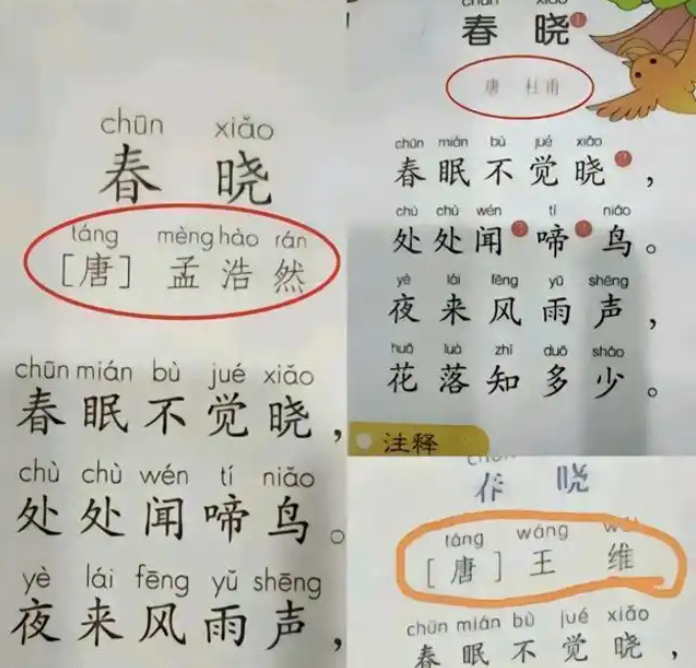 chūn xiǎo
春 晓
táng mèng hào rán
[唐] 孟 浩 然
chūn mián bù jué xiǎo
春 眠 不 觉 晓，
chù chù wén tí niǎo
处 处 闻 啼 鸟。
yè lái fēng yǔ shēng
夜 来 风 雨 声，
chūn xiǎo
春 晓
唐 杜甫
chūn mián bù jué xiǎo
春 眠 不 觉 晓，
chù chù wén tí niǎo
处 处 闻 啼 鸟。
yè lái fēng yǔ shēng
夜 来 风 雨 声，
huā luò zhī duō shǎo
花 落 知 多 少。
注释
晓
táng wáng
[唐] 王 维
chūn mián bù jué xiǎo
春 眠 不 觉 晓，